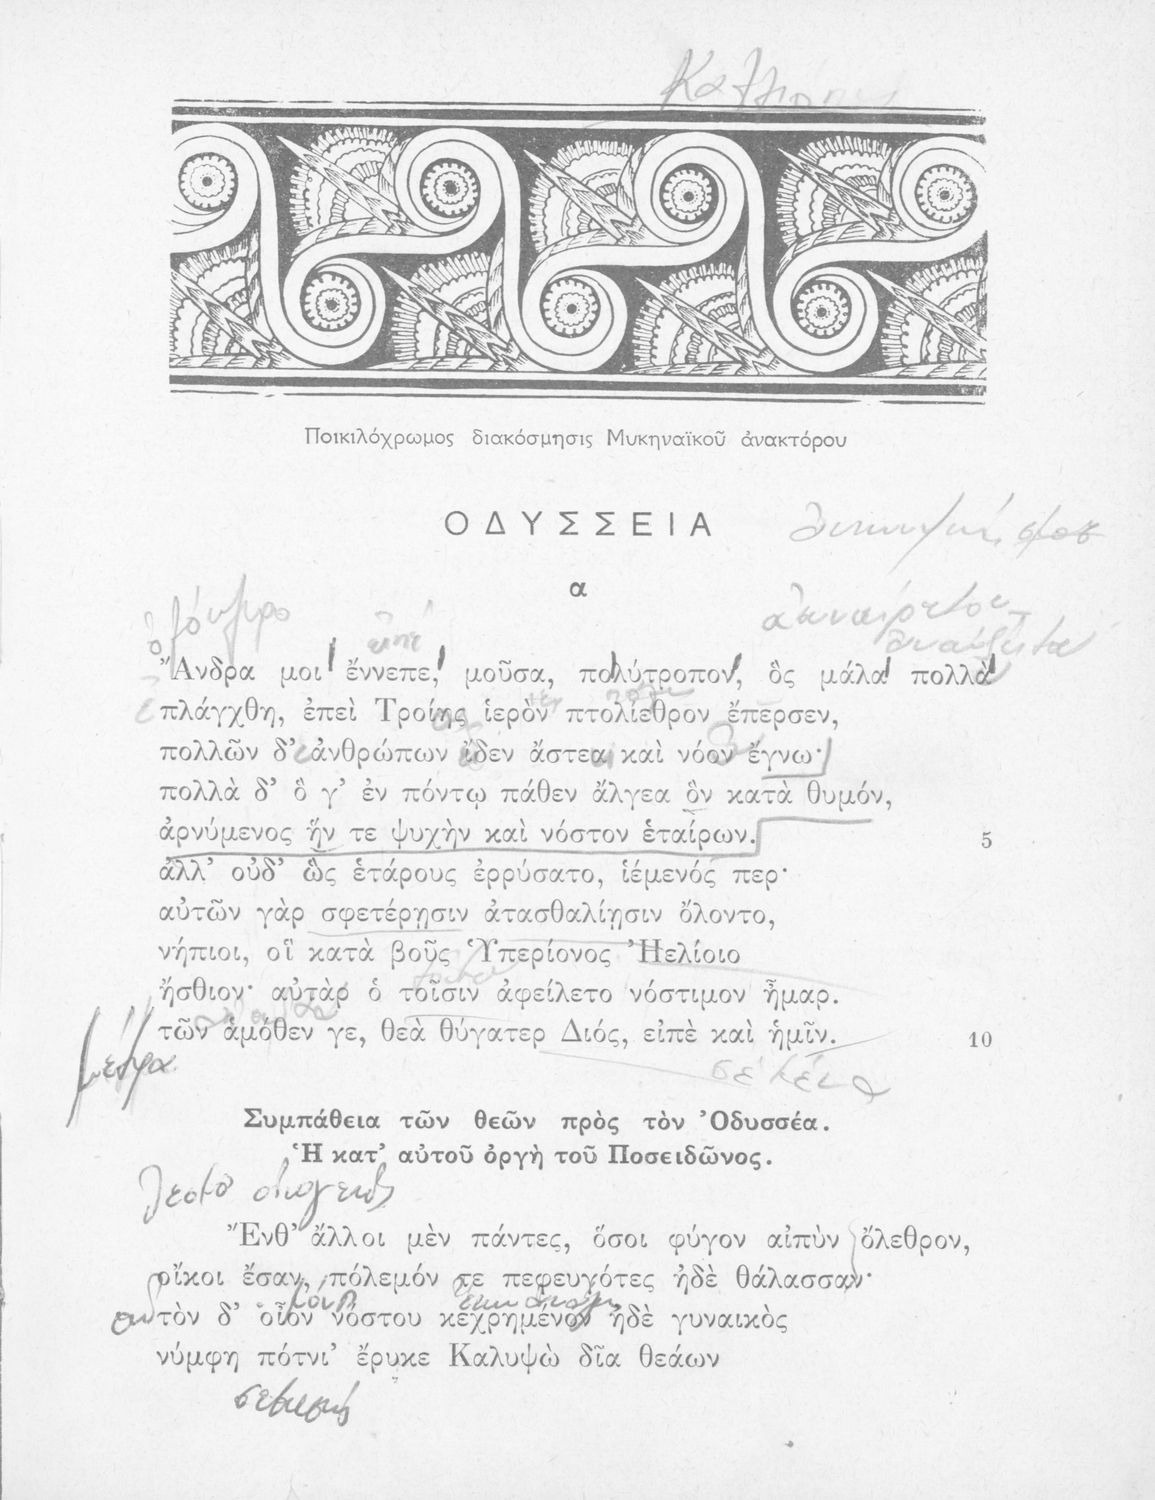 Ποικιλόχρωμος διακόσμησις Μυκηναϊκοῦ ἀνακτόρου
ΟΔΥΣΣΕΙΑ
α
Ἄνδρα μοι ἔννεπε, μοῦσα, πολύτροπον, ὃς μάλα πολλὰ
πλάγχθη, ἐπεὶ Τροίης ἱερὸν πτολίεθρον ἔπερσεν,
πολλῶν δ' ἀνθρώπων ἴδεν ἄστεα καὶ νόον ἔγνω·
πολλὰ δ' ὅ γ' ἐν πόντῳ πάθεν ἄλγεα ὃν κατὰ θυμόν,
ἀρνύμενος ἥν τε ψυχὴν καὶ νόστον ἑταίρων.
5
ἀλλ' οὐδ' ὣς ἑτάρους ἐρρύσατο, ἱέμενός περ·
αὐτῶν γὰρ σφετέρῃσιν ἀτασθαλίῃσιν ὄλοντο,
νήπιοι, οἳ κατὰ βοῦς Ὑπερίονος Ἠελίοιο
ἤσθιον· αὐτὰρ ὁ τοῖσιν ἀφείλετο νόστιμον ἦμαρ.
τῶν ἁμόθεν γε, θεὰ θύγατερ Διός, εἰπὲ καὶ ἡμῖν.
10
Συμπάθεια τῶν θεῶν πρὸς τὸν Ὀδυσσέα.
Ἡ κατ' αὐτοῦ ὀργὴ τοῦ Ποσειδῶνος.
Ἔνθ' ἄλλοι μὲν πάντες, ὅσοι φύγον αἰπὺν ὄλεθρον,
οἴκοι ἔσαν, πόλεμόν τε πεφευγότες ἠδὲ θάλασσαν·
τὸν δ' οἶον νόστου κεχρημένον ἠδὲ γυναικὸς
νύμφη πότνι' ἔρυκε Καλυψὼ δῖα θεάων